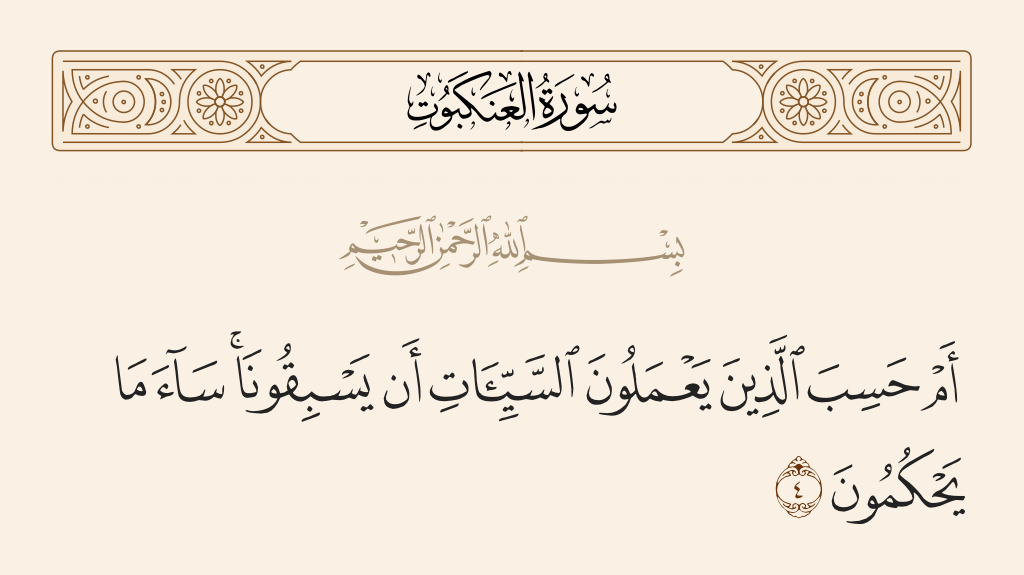 سُورَةُ الْعَنكَبُوتِ
بِسْمِ ٱللَّهِ ٱلرَّحْمَٰنِ ٱلرَّحِيمِ
أَمْ حَسِبَ ٱلَّذِينَ يَعْمَلُونَ ٱلسَّيِّـَٔاتِ أَن يَسْبِقُونَا ۚ سَآءَ مَا
يَحْكُمُونَ ٤